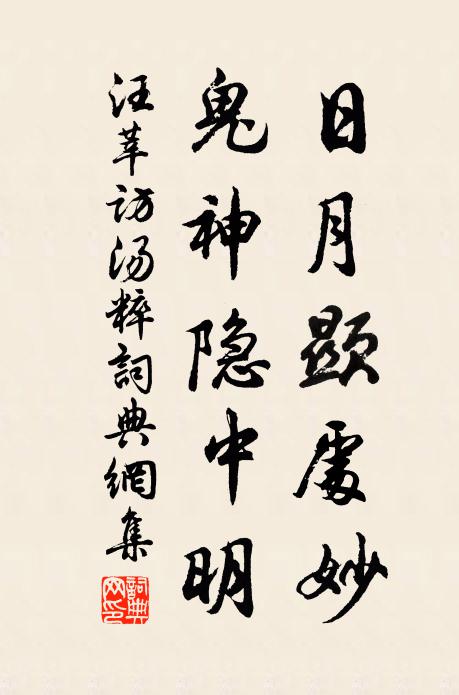 日月顯處妙
鬼神隐中明
汪莘访汤粹詞典網集
詞典网印